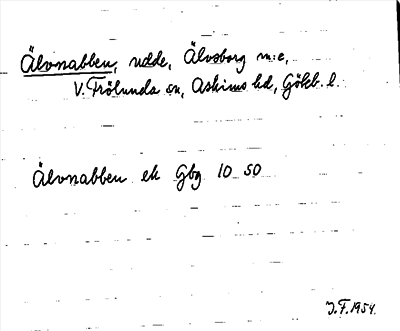 Älvnabben, udde, Älvsborg m:e,
V. Frölunda sn, Askims hd, Gökb. l.
Älvnabben ek Gbg 10 50
J.F. 1954.